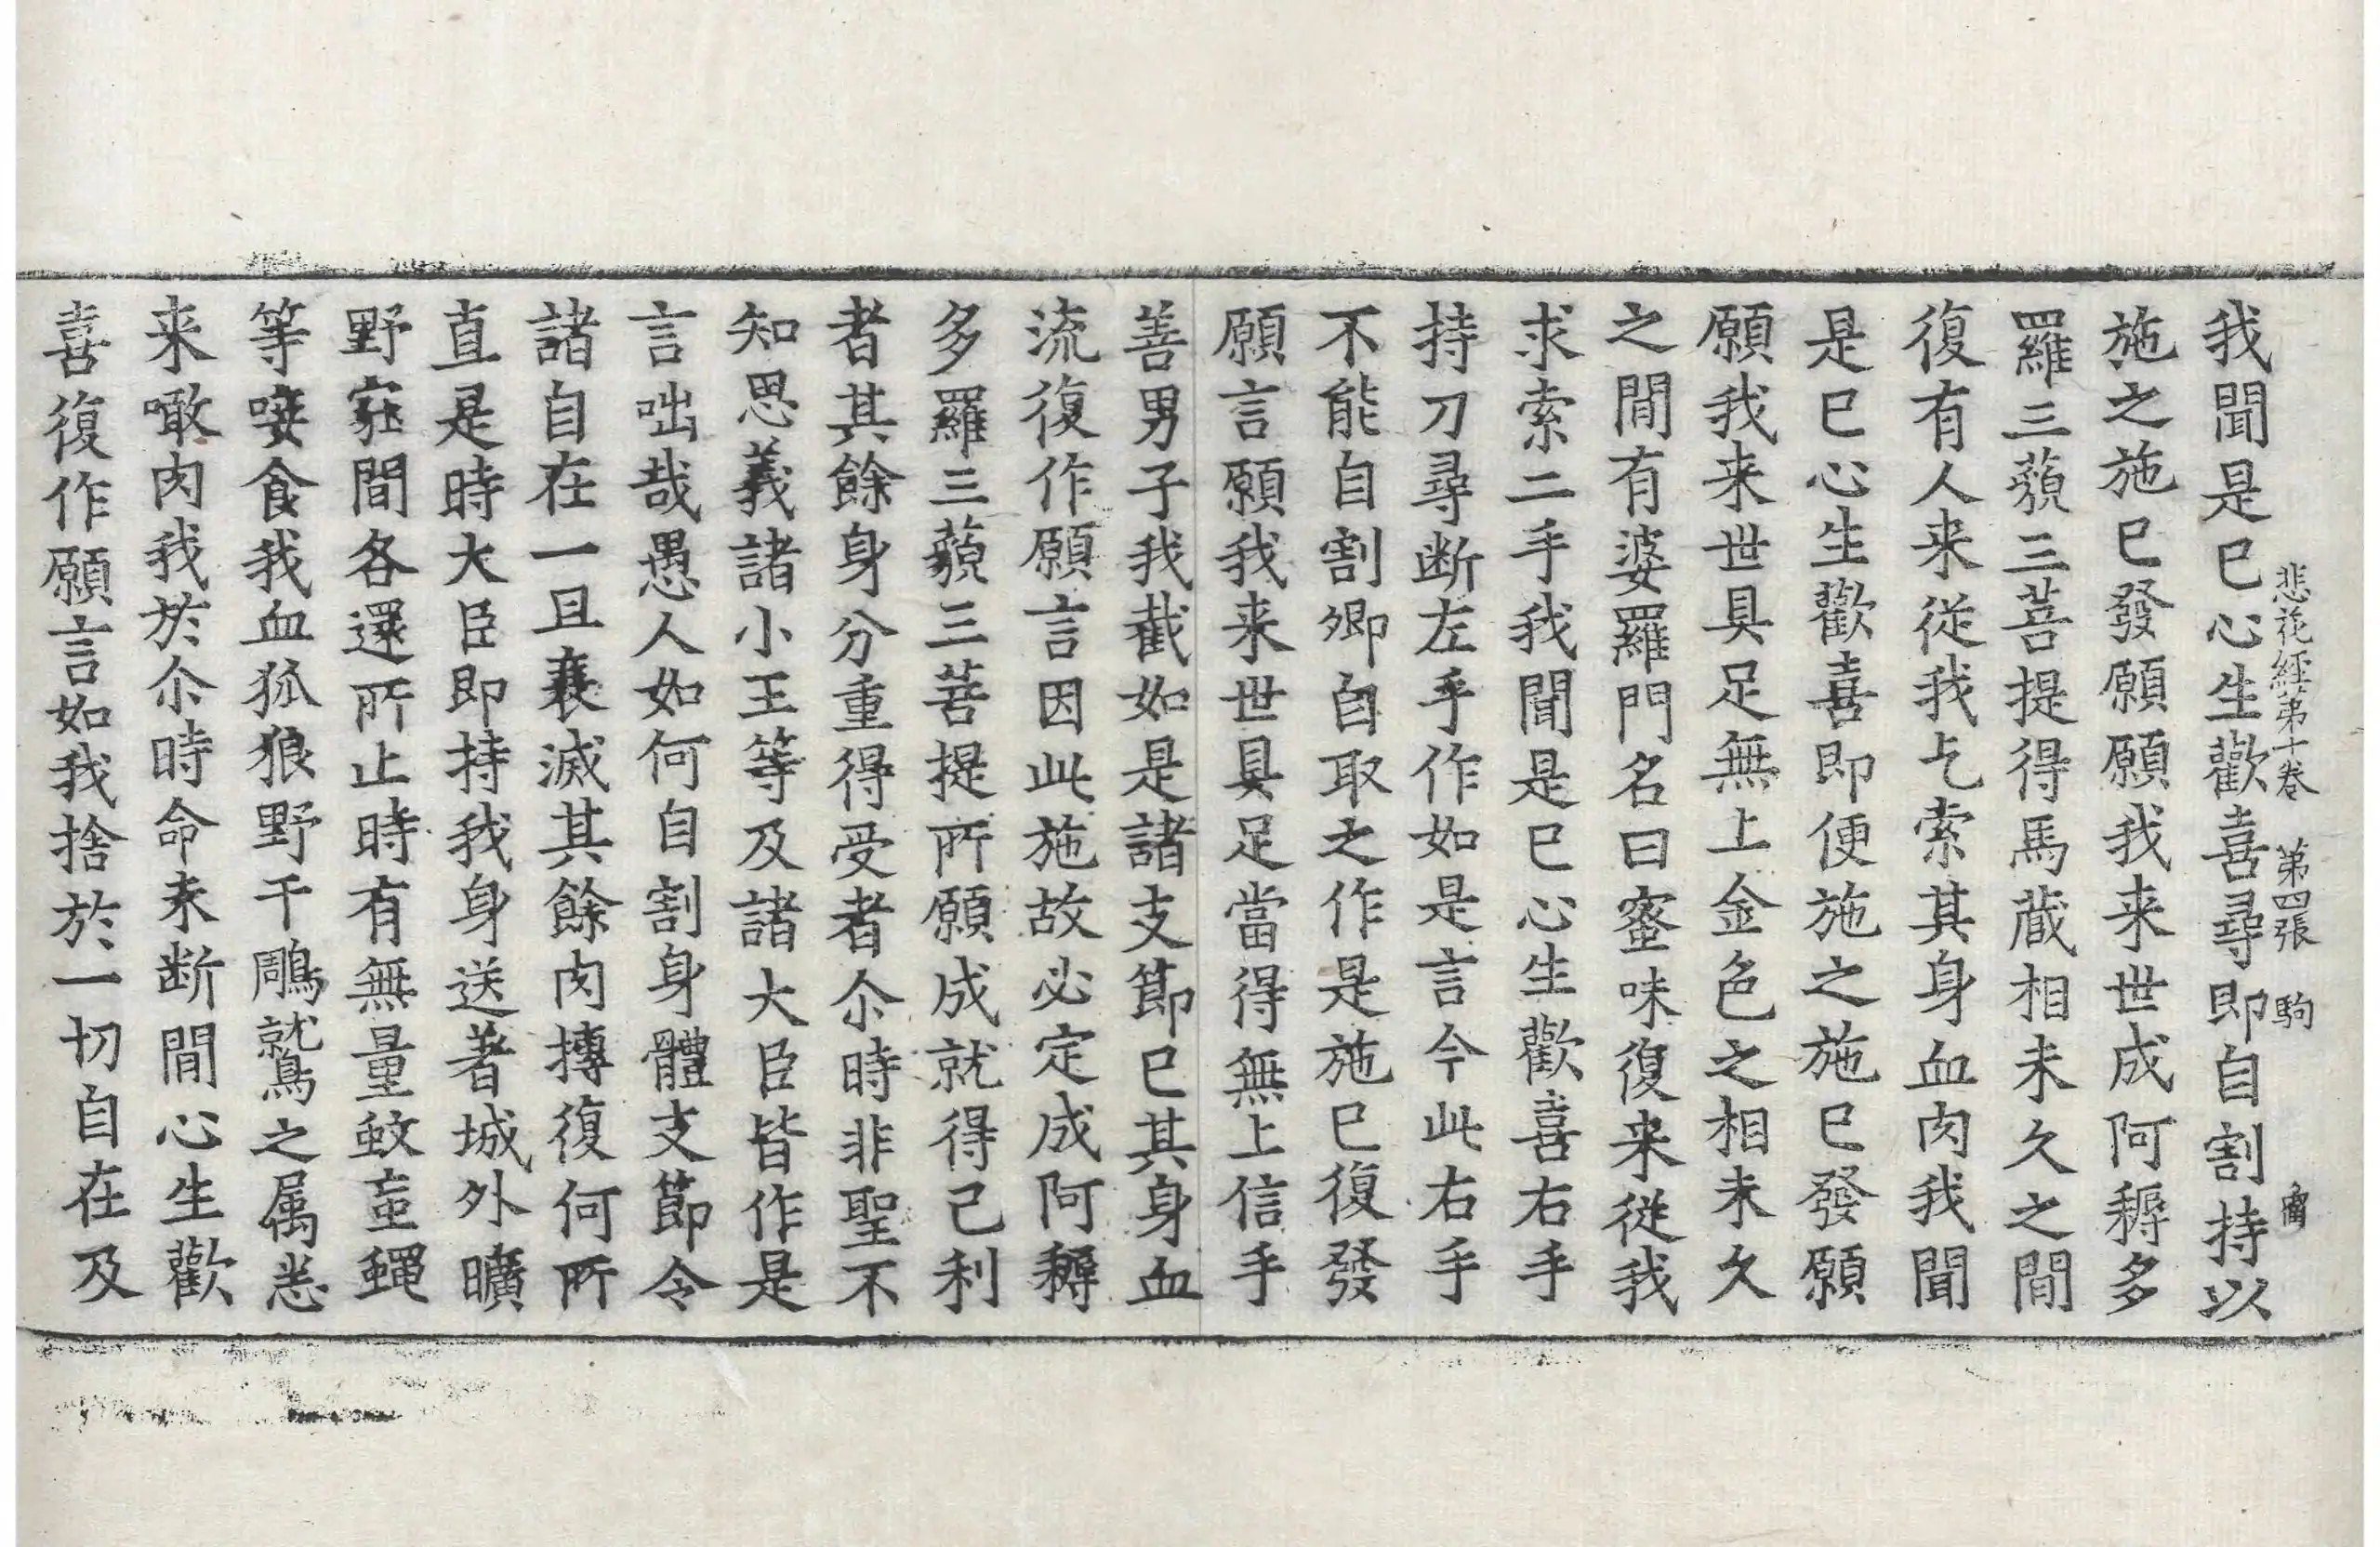 悲花經第十卷 第四張 駒
我聞是已心生歡喜尋即自割持以
施之施已發願願我来世成阿耨多
羅三藐三菩提得馬蔵相未久之間
復有人来従我乞索其身血肉我聞
是已心生歡喜即便施之施已發願
願我来世具足無上金色之相未久
之間有婆羅門名曰蜜味復来従我
求索二手我聞是已心生歡喜右手
持刀尋断左手作如是言今此右手
不能自割卿自取之作是施已復發
願言願我来世具足當得無上信手
善男子我截如是諸支節已其身血
流復作願言因此施故必定成阿耨
多羅三藐三菩提所願成就得己利
者其餘身分重得受者尒時非聖不
知恩義諸小王等及諸大臣皆作是
言咄哉愚人如何自割身體支節令
諸自在一旦衰滅其餘肉摶復何所
直是時大臣即持我身送著城外曠
野冢間各還所止時有無量蚊蝱蠅
等唼食我血狐狼野干鵰鷲之属悉
来噉肉我於尒時命未断間心生歡
喜復作願言如我捨於一切自在及